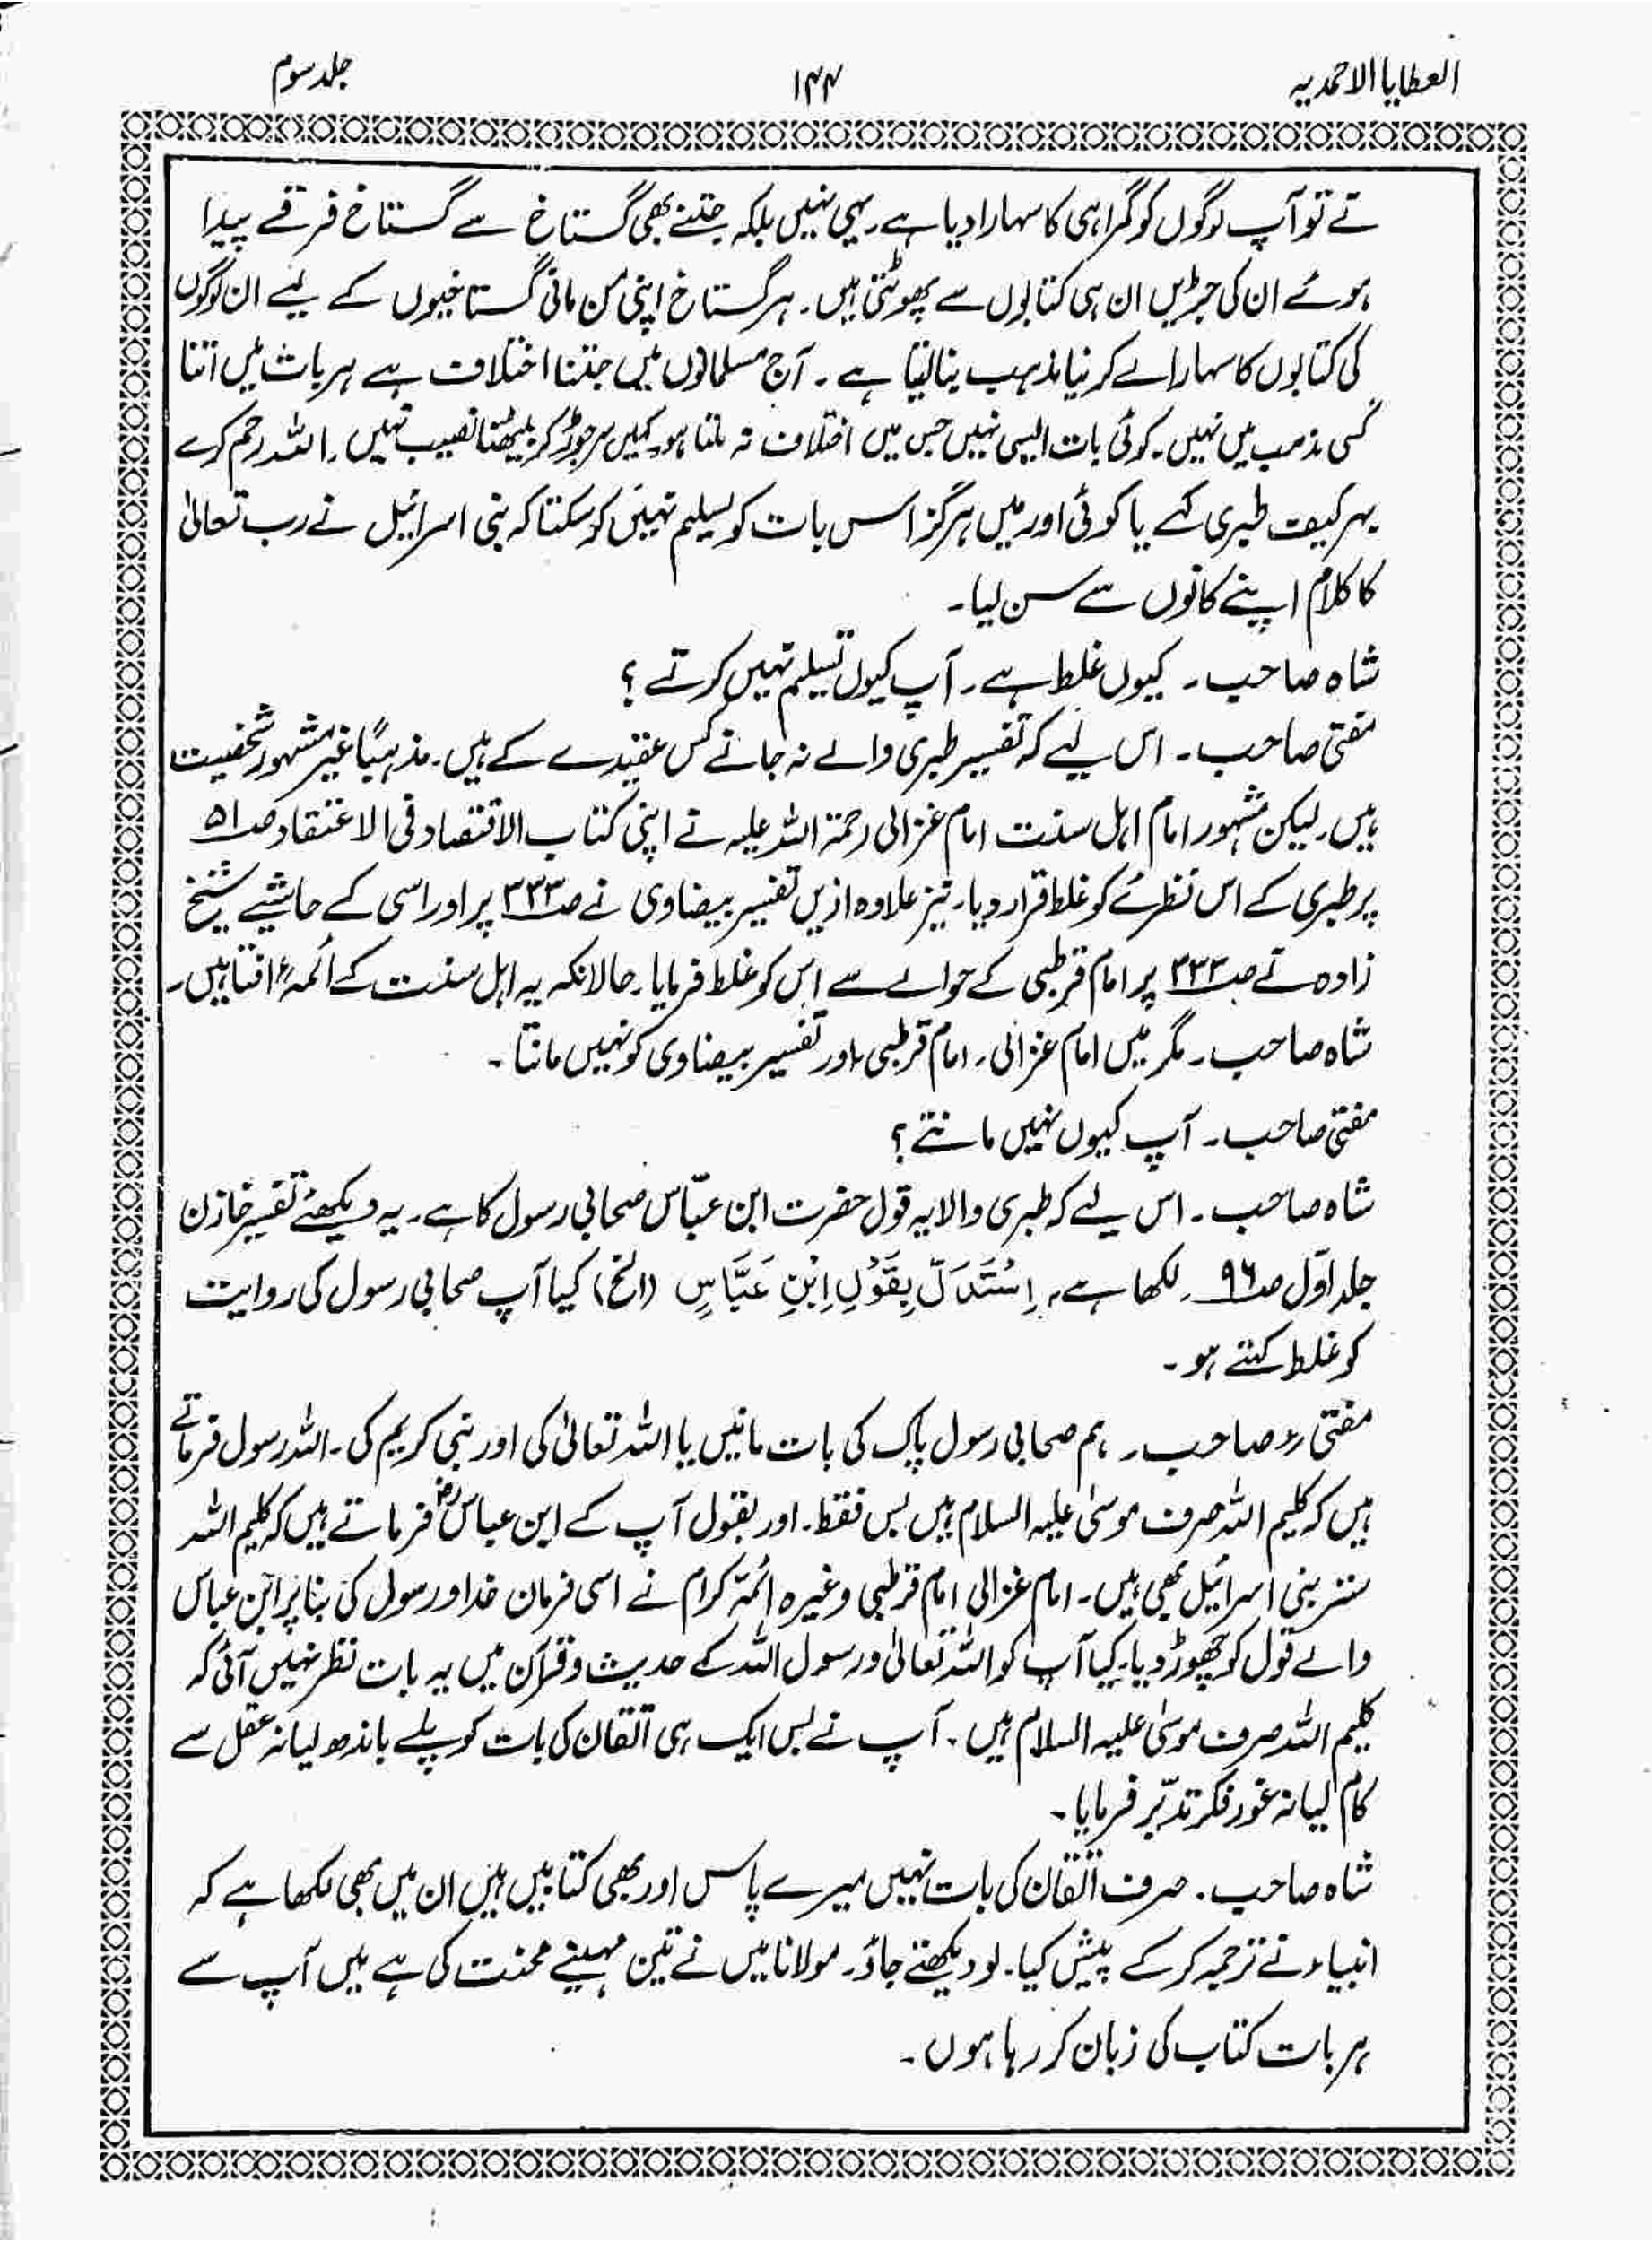 العطایا الاحمدیہ ۱۴۴ جلد سوم
نے تو آپ لوگوں کو گمراہی کا سہارا دیا ہے۔ یہی نہیں بلکہ جتنے بھی گستاخ سے گستاخ فرقے پیدا
ہوئے ان کی جڑیں ان ہی کتابوں سے پھوٹتی ہیں۔ ہر گستاخ اپنی من مانی گستاخیوں کے لیے ان لوگوں
کی کتابوں کا سہارا لے کر نیا مذہب بنا لیتا ہے۔ آج مسلمانوں میں جتنا اختلاف ہے ہر بات میں اتنا
کسی مذہب میں نہیں۔ کوئی بات ایسی نہیں جس میں اختلاف نہ ملتا ہو۔ کہیں سر جوڑ کر بیٹھنا نصیب نہیں۔ اللہ رحم کرے
بہر کیف طبری کہے یا کوئی اور میں ہرگز اس بات کو تسلیم نہیں کو سکتا کہ بنی اسرائیل نے رب تعالیٰ
کا کلام اپنے کانوں سے سن لیا۔
شاہ صاحب۔ کیوں غلط ہے۔ آپ کیوں تسلیم نہیں کرتے؟
مفتی صاحب۔ اس لیے کہ تفسیر طبری والے نہ جانے کس عقیدے کے ہیں۔ مذہباً غیر مشہور شخصیت
ہیں۔ لیکن مشہور امام اہل سنت امام غزالی رحمۃ اللہ علیہ نے اپنی کتاب الاقتصاد فی الاعتقاد صـ۵۱
پر طبری کے اس نظرئے کو غلط قرار دیا۔ نیز علاوہ ازیں تفسیر بیضاوی نے صـ۳۳۳ پر اور اسی کے حاشیے شیخ
زادہ نے صـ۳۳۳ پر امام قرطبی کے حوالے سے اس کو غلط فرمایا۔ حالانکہ یہ اہل سنت کے أئمہٴ افتا ہیں۔
شاہ صاحب۔ مگر میں امام غزالی۔ امام قرطبی اور تفسیر بیضاوی کو نہیں مانتا۔
مفتی صاحب۔ آپ کیوں نہیں مانتے؟
شاہ صاحب۔ اس لیے کہ طبری والا یہ قول حضرت ابن عبّاس صحابی رسول کا ہے۔ یہ دیکھئے تفسیر خازن
جلد اوّل صـ۹۶۔ لکھا ہے۔ اِسْتَدَلَّ بِقَوْلِ اِبْنِ عَبَّاسٍ (الخ) کیا آپ صحابی رسول کی روایت
کو غلط کہتے ہو۔
مفتی صاحب۔ ہم صحابی رسول پاک کی بات مانیں یا اللہ تعالیٰ کی اور نبی کریم کی۔ اللہ رسول فرماتے
ہیں کہ کلیم اللہ صرف موسیٰ علیہ السلام ہیں بس فقط۔ اور بقول آپ کے ابن عباسؓ فرماتے ہیں کہ کلیم اللہ
ستر بنی اسرائیل بھی ہیں۔ امام غزالی امام قرطبی وغیرہ ائمّہ کرام نے اسی فرمان خدا و رسول کی بنا پر ابن عباس
والے قول کو چھوڑ دیا۔ کیا آپ کو اللہ تعالیٰ و رسول اللہ کے حدیث و قرآن میں یہ بات نظر نہیں آئی کہ
کلیم اللہ صرف موسیٰ علیہ السلام ہیں۔ آپ نے بس ایک ہی اتقان کی بات کو پلے باندھ لیا نہ عقل سے
کام لیا نہ غور فکر تدبّر فرمایا۔
شاہ صاحب۔ صرف اتقان کی بات نہیں میرے پاس اور بھی کتابیں ہیں ان میں بھی لکھا ہے کہ
انبیاء نے ترجمہ کر کے پیش کیا۔ لو دیکھتے جاؤ۔ مولانا میں نے تین مہینے محنت کی ہے میں آپ سے
ہر بات کتاب کی زبان کر رہا ہوں۔